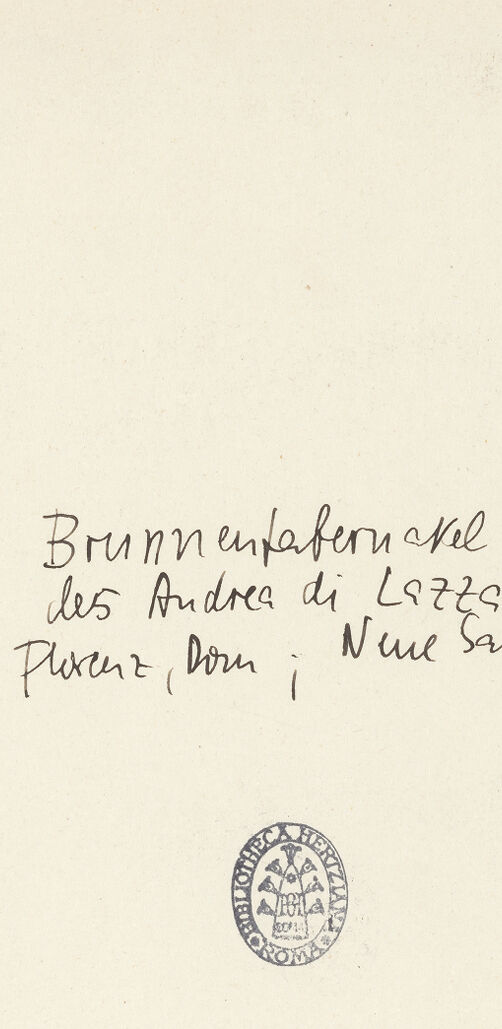 Brunnentabernakel
des Andrea di Lazza
Florenz, Dom; Neue Sa
BIBLIOTHECA HERTZIANA
ROMA